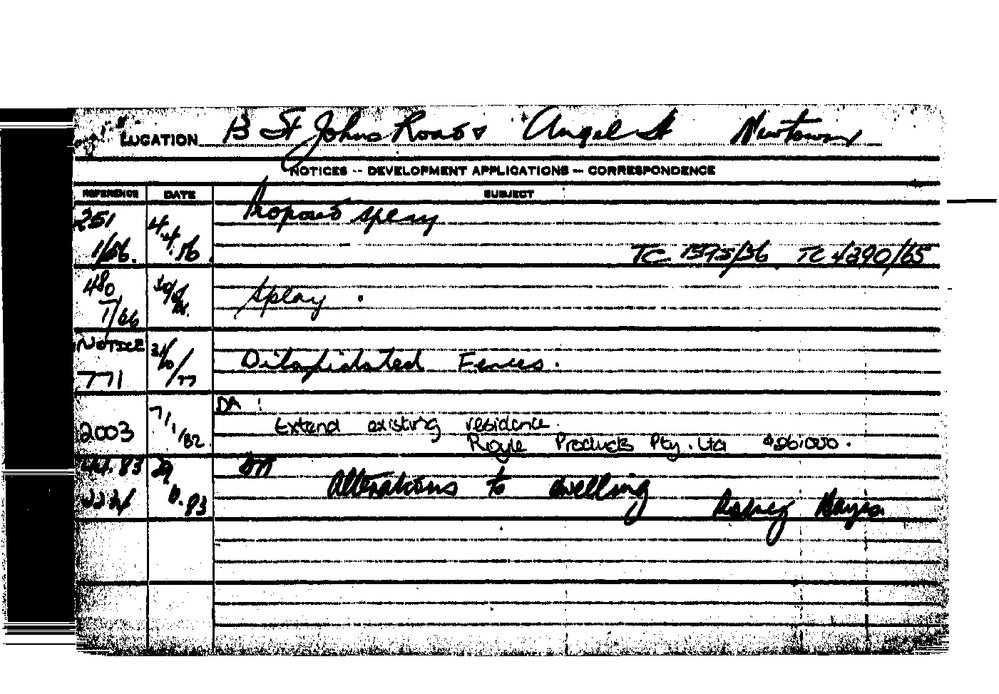 LOCATION St Johns Road & Angel St Newtown
NOTICES -- DEVELOPMENT APPLICATIONS -- CORRESPONDENCE
REFERENCE DATE SUBJECT
251 Proposed splay
1/56. TC 1575/56 TC 4290/65
480
7/66 Splay.
NOTICE
771 Dilapidated Fences.
DA :
2003 7/1/82. Extend existing residence
Royle Products Pty. Ltd
83 29
.83 Alterations to dwelling